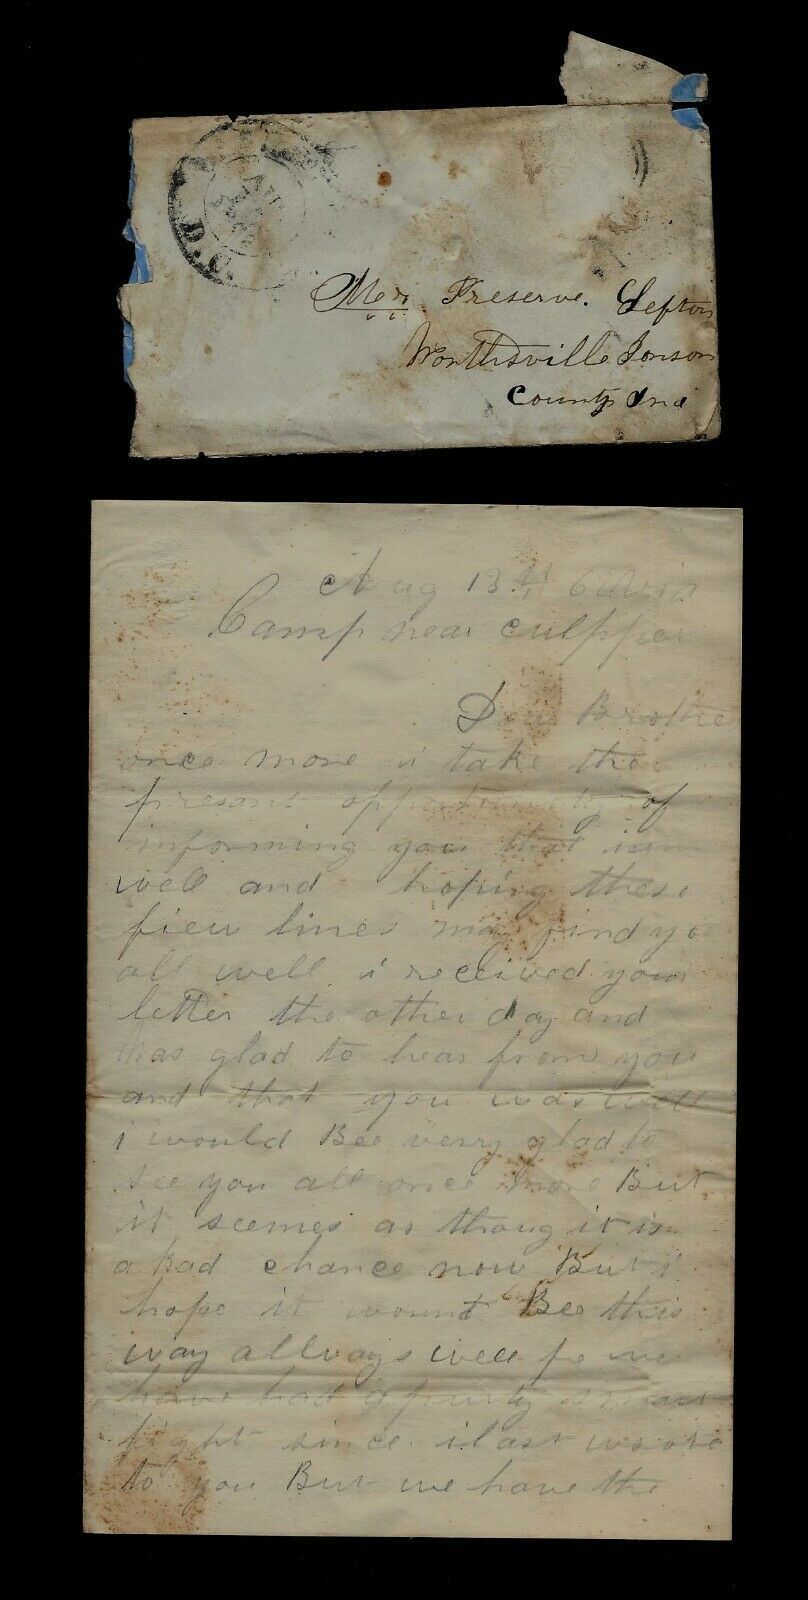 D.C.
AU
Mr. Preserve. Lefton
Worthsville Jonson
County Ind
Aug 13th 62
Camp near Culpper
Dear Brothe
once more i take the
presant opportunity of
informing you that iam
well and hoping these
fiew lines may find yo
all well i received your
letter the other day and
Was glad to hear from you
and that you was well
i would Bee verry glad to
see you all once more But
it seemes as thoug it is
a Bad chance now But i
hope it wount Bee this
way allways well fe we
have had a purty smart
fight since i last wrote
to you But we have the